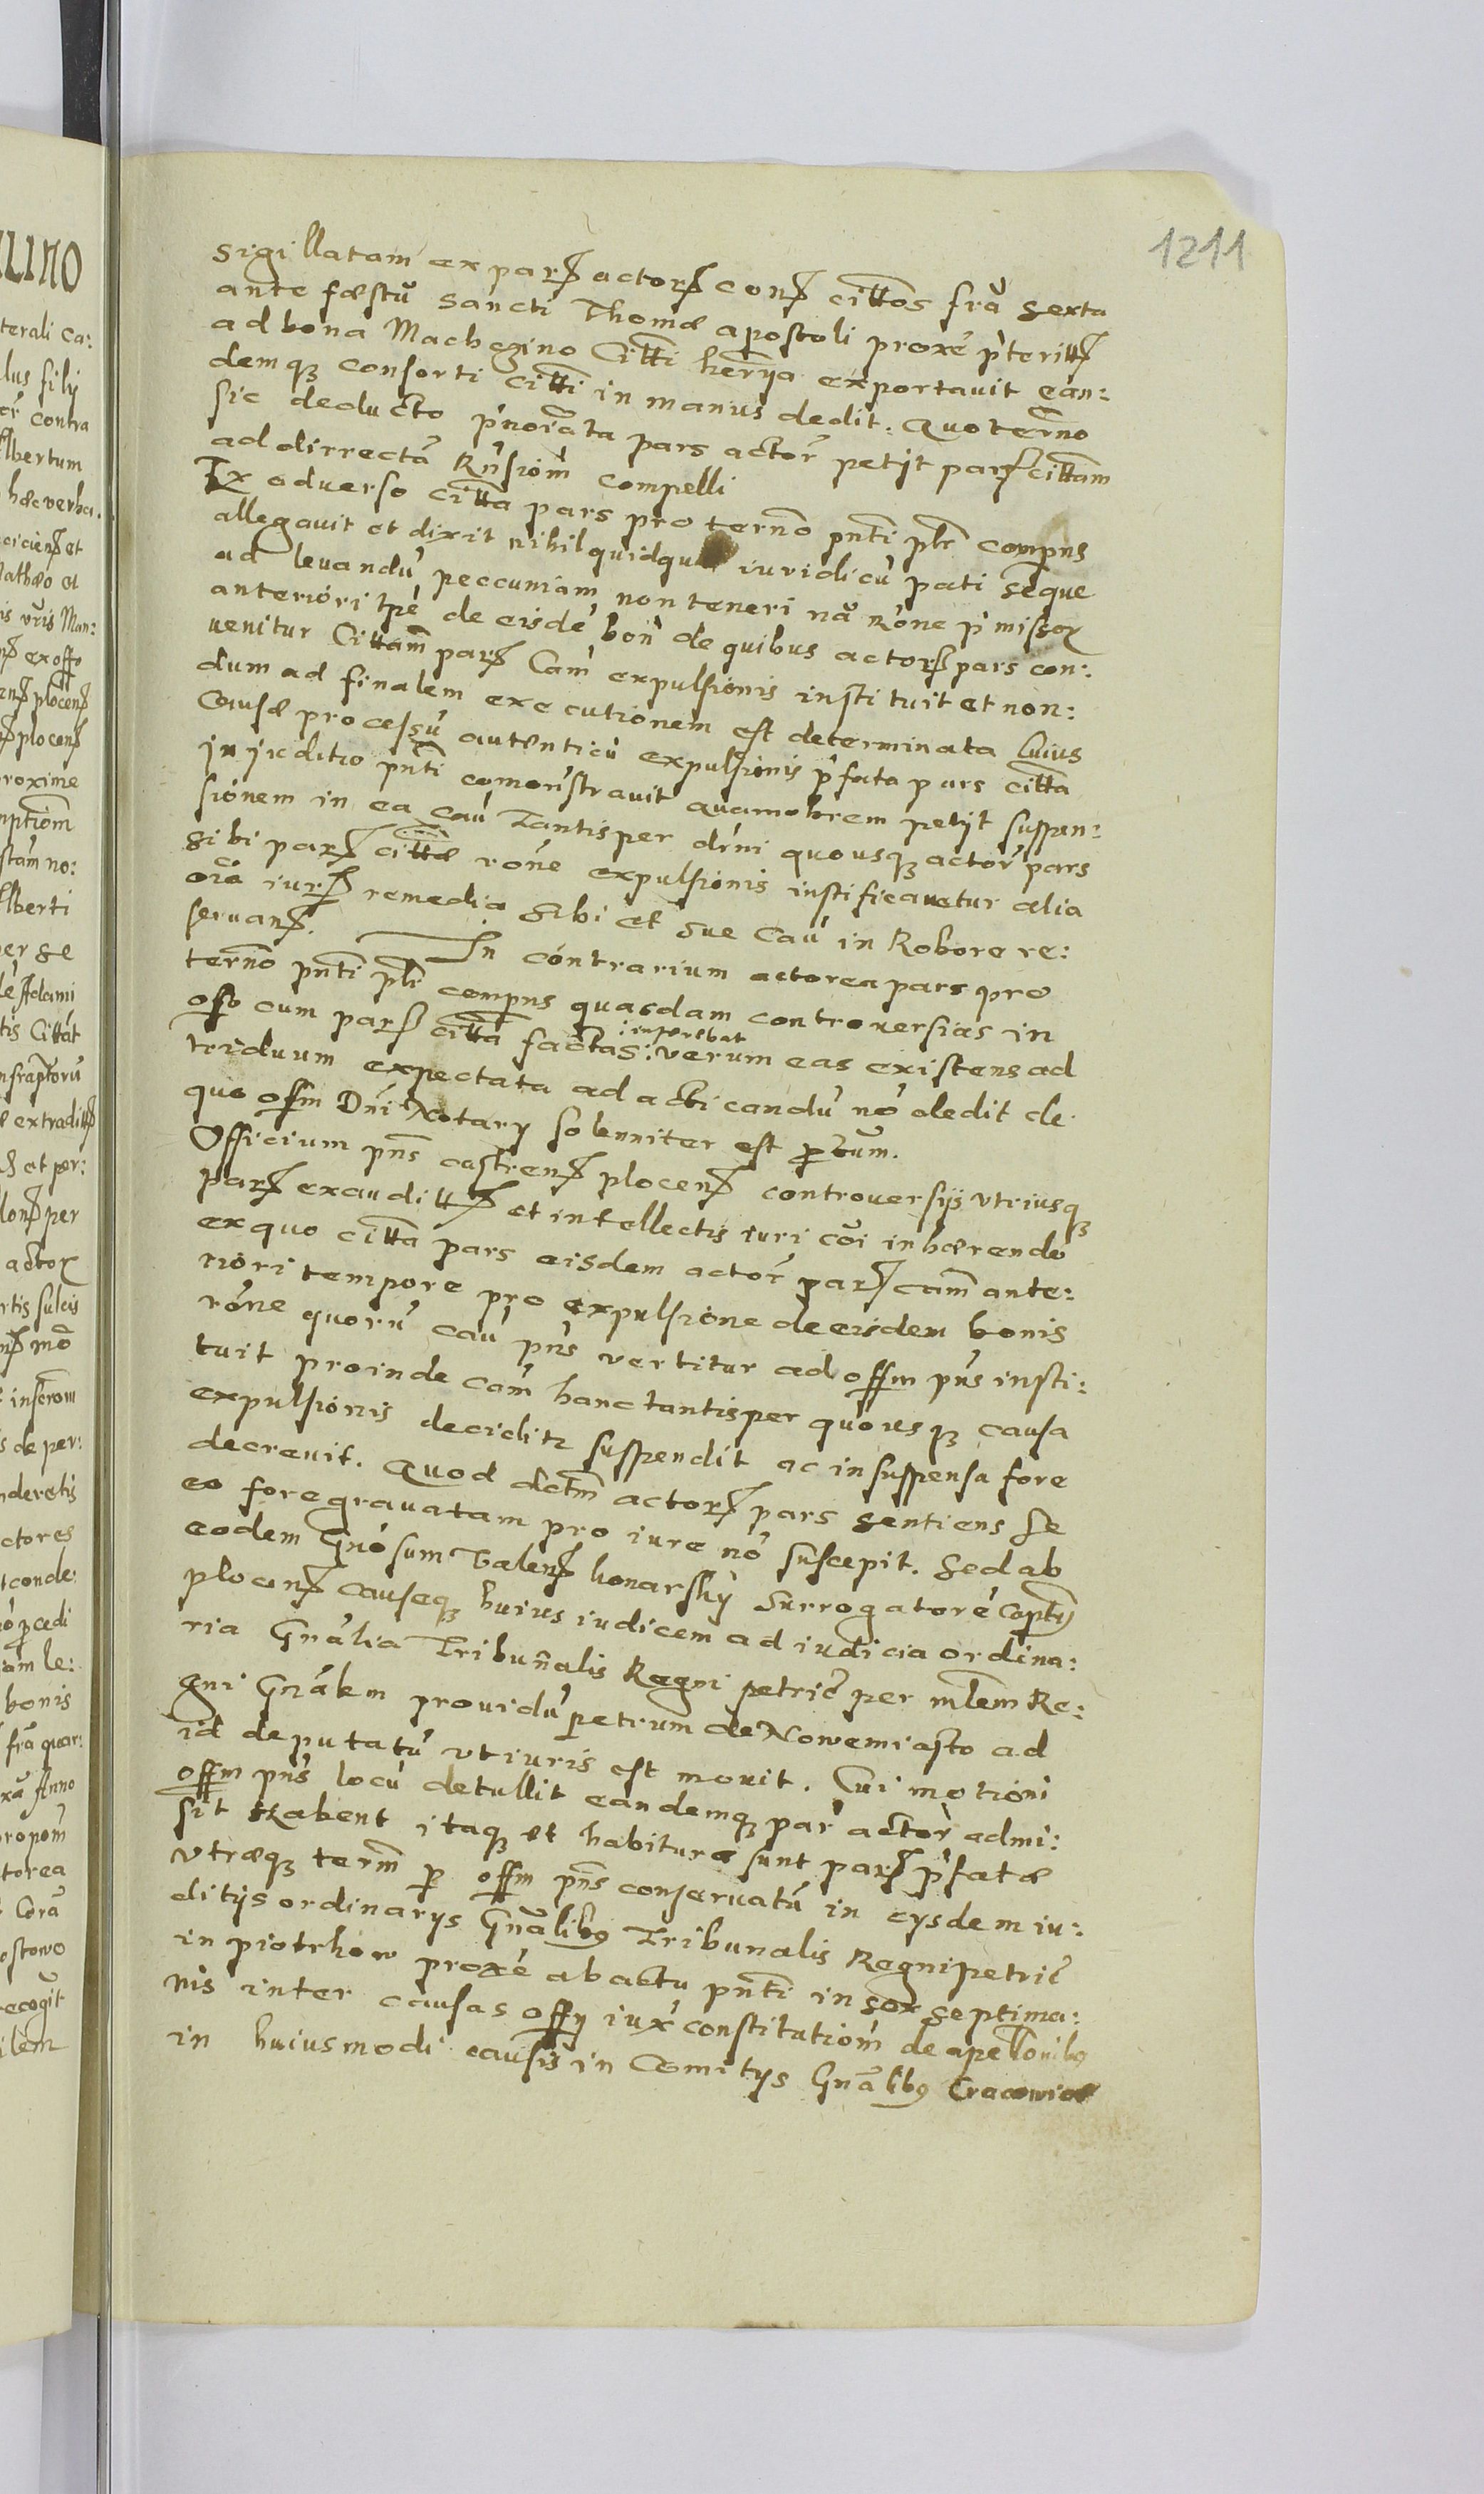 1211
sigillatam ex parß actorß conß citttos fra sexta
ante fæstũ sancti Thomæ apostoli proxe pteritß
ad bona Machczino Citti herrija exportavit ean:
demq3 consorti citti in manus dedit. Quo terno
sic deducto pnoiata pars actor petijt parß cittam
ad dirrectã Rnsiom compelli
Ex adverso citta pars pro terno pnti ptr compns
allegavit et dixit nihil quidqu iuridicũ pati seque
ad levandũ peccuniam non teneri nã Rone pmissor
anteriori tpe de eisde bon de quibus actorß pars con:
venitur Cittam parß Cam expulsionis instituit et non:
dum ad finalem executionem est determinata Cuius
Causæ processũ autenticũ expulsionis pfata pars citta
in juditio pnti comonstravit quamobrem petijt suspen:
sionem in ea caũ Tantisper dini quousq3 actor pars
sibi parß cittæ rone expulsionis iustificavetur alia
oia iurß remedia sibi et sue Caũ in Robore re:
servanß. In contrarium actorea pars pro
terno pnti ptr compns quasdam controversias in
offo cum parß citta factas: inferebat verum eas existens ad
triduum expectata ad acticandũ nõ dedit de
quo offm Dni Notary solenniter est ptum.
Officium pns castrenß plocenß controversijs utriusq3
parß exaudittß et intellectis iuri coi inhærendo
ex quo citta pars eisdem actor parß cam ante:
riori tempore pro expulsione de eisdem bonis
rone quorũ caũ pns vertitur ad offm pns insti:
tuit proinde cam hanc tantisper quousq3 causa
expulsionis decidit suspendit ac in suspensa fore
decrevit. Quod dctm actorß pars sentiens se
eo fore gravatam pro iure nõ suscepit. Sed ab
eodem Gnosum Valenß konarskij Surrogatore Captß
plocenß causeq3 huius iudicem ad iudicia ordina:
ria Gnalia Tribunalis Regni petric per mltem Re:
gni Gnalem providũ petrum de Nowemiasto ad
id deputatũ ut iuris est movit. Cui motioni
offm pns locũ detullit eandemq3 par actor admi:
sit Habent itaq3 et habituræ sunt parß pfatæ
utræq3 term p offm pns conservatũ in eysdem iu:
ditijs ordinarys Gnalibus Tribunalis Regni petric
in piotrkow proxe ab actu pnti in sex septima:
nis inter causas offy iux constitutiom de apellonibus
in huiusmodi causis in Comitys Gnalibus Cracowiæ